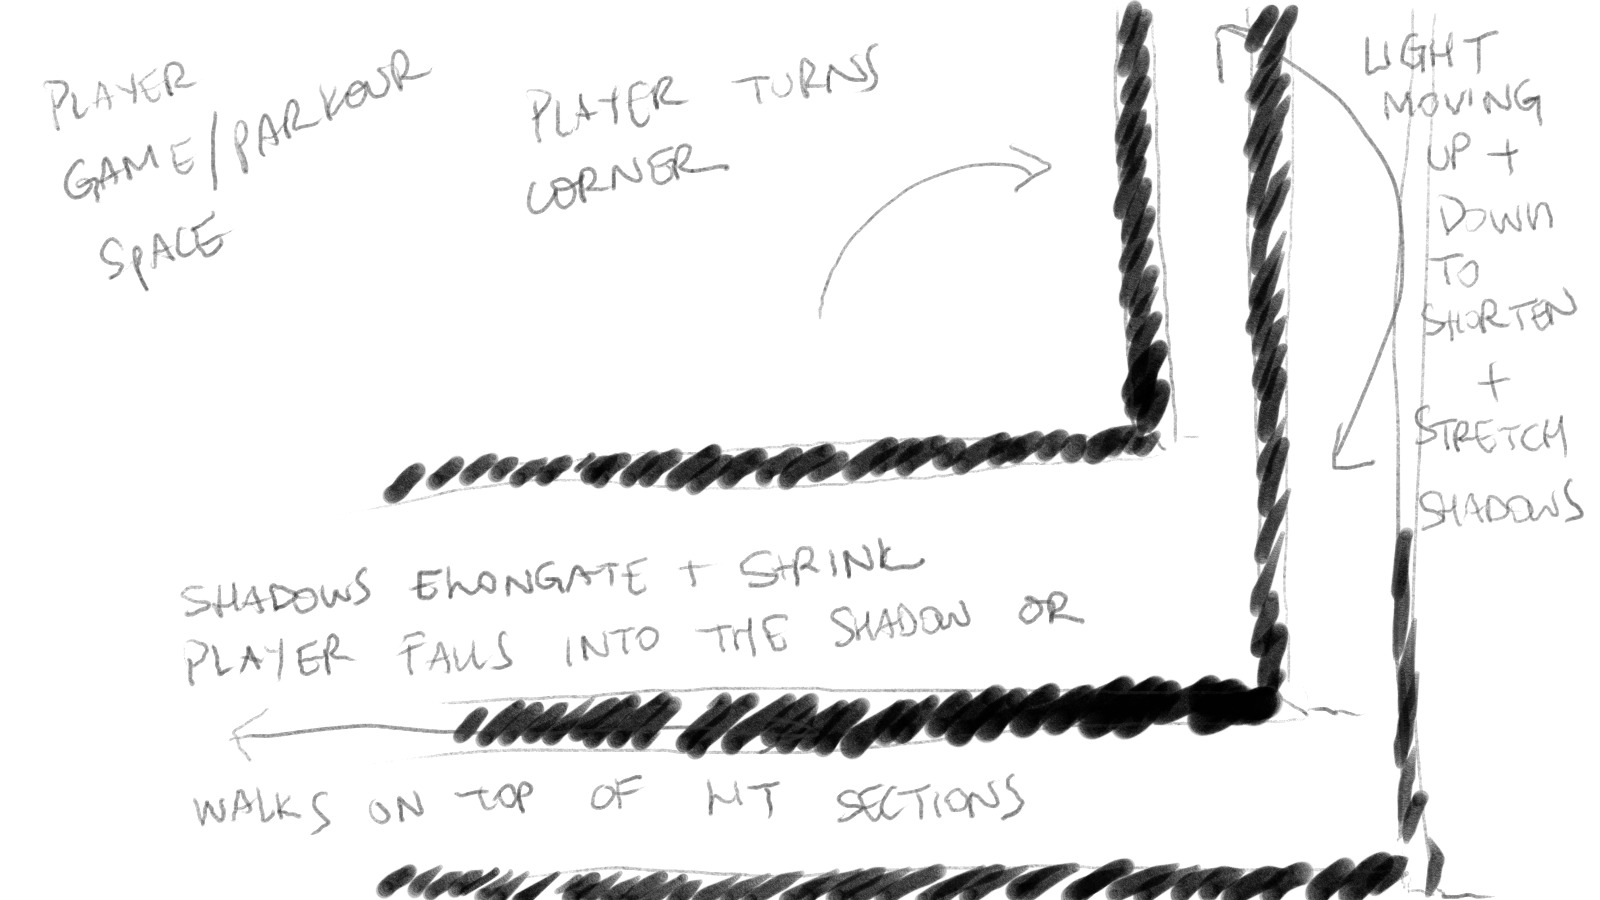 PLAYER
GAME/PARKOUR
SPACE
PLAYER TURNS
CORNER
LIGHT
MOVING
UP +
DOWN
TO
SHORTEN
+
STRETCH
SHADOWS
SHADOWS ELONGATE + SHRINK
PLAYER FALLS INTO THE SHADOW OR
WALKS ON TOP OF LIT SECTIONS